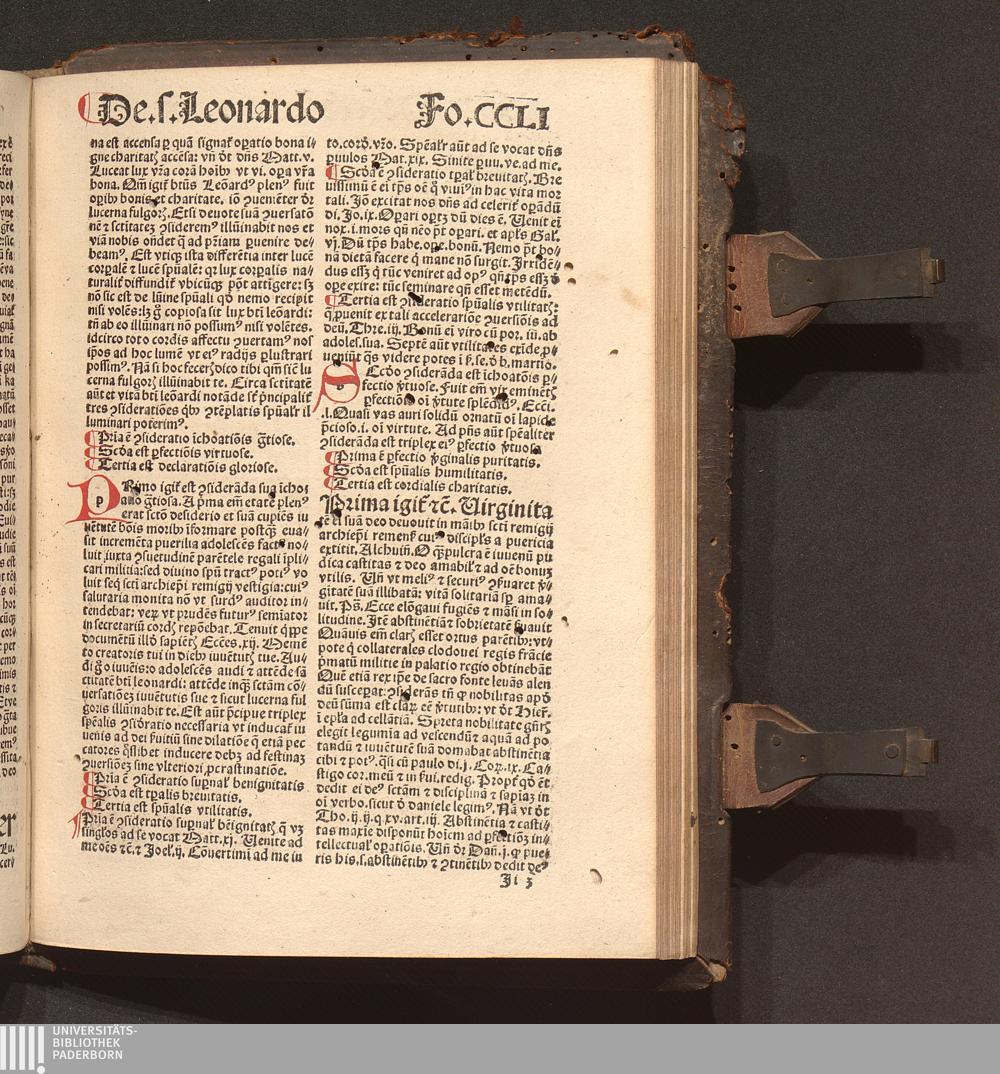 De.s.Leonardo Fo.CCLI
na est accensa ꝑ quā signat᷑ oꝑatio bona i/
gne charitatꝭ accēsa: vn̄ dt̄ dn̄s Matt.v.
Luceat lux vr̄a corā hoib᷒ vt vi. oꝑa vr̄a
bona. Qm̄ igit᷑ btūs Leōard᷒ plen᷒ fuit
oīb᷒ bonis et charitate. iō ꝯuenīeter dr̄
lucerna fulgorꝭ. Etsi deuote suā ꝯuersatō
nē ⁊ sctitatē ꝯsiderem᷒ illūinabit nos et
viā nobis ondet q̄ ad pr̄iam ꝑuenire de/
beam᷒. Est vtiqꝫ ista differētia inter lucē
corꝑalē ⁊ lucē spūalē: qꝛ lux corꝑalis na/
turalit᷑ diffundit᷑ vbicūqꝫ pōt attīgere: sꝫ
nō sic est de lūine spūali qd̄ nemo recipit
nisi volēs: lꝫ g̊ copiosa sit lux bti leōardi:
tn̄ ab eo illūinari nō possum᷒ nisi volētes.
idcirco toto cordis affectu ꝯuertam᷒ nos
ip̄os ad hoc lumē vt ei᷒ radijs ꝑlustrari
possim᷒. Nā si hoc fecerꝭ dico tibi qm̄ sic̄ lu
cerna fulgorꝭ illūinabit te. Circa sctitatē
aūt et vitā bti leōardi notāde st̄ pn̄cipalit᷑
tres ꝯsideratiōes qb᷒ ꝯtēplatis spūalr̄ il
luminari poterim᷒.
Pria ē ꝯsideratio īchoatiōis gr̄tiose.
Scd̄a est ꝑfectiōis virtuose.
Tertia est declaratiōis gloriose.
PRimo igit᷑ est ꝯsiderāda sua īchoa
tio gr̄tiosa. A pͥma em̄ etate plen᷒
erat sctō desiderio et suā cupiēs iu
uētutē bōis morib᷒ īformare postqꝫ eua/
sit incremēta puerilia adolescēs fact᷒ no/
luit iuxta ꝯsuetudinē parētele regali īpli/
cari militia: sed diuino spū tract᷒ poti᷒ vo
luit seq̄ scti archiep̄i remigij vestigia: cui᷒
salutaria monita nō vt surd᷒ auditor in/
tendebat: veꝝ vt prudēs futur᷒ semīator
in secretariū cordꝭ repōebat. Tenuit q̄ppe
documētū illd̄ sapiētꝭ Ecc̄es.xij. Memē
to creatoris tui in dieb᷒ iuuētutꝭ tue. Au/
di g̊ o iuuēis: o adolescēs audi ⁊ attēde sā
ctitatē bti leonardi: attēde inqꝫ sctām cō/
uersatiōeꝫ iuuētutis sue ⁊ sicut lucerna ful
goris illūinabit te. Est aūt pͥcipue triplex
spēalis ꝯsiderōratio necessaria vt inducat᷑ iu
uenis ad dei ẜuitiū sine dilatiōe q̄ etiā pec
catores qͥslibet inducere debꝫ ad festinaꝫ
ꝯuersiōeꝫ sine vlteriori ꝓcrastinatiōe.
Pria ē ꝯsideratio supnal᷑ benignitatis
Scd̄a est tꝑalis breuitatis.
Tertia est spūalis vtilitatis.
Pria ē ꝯsideratio supnal᷑ bēignitatꝭ q̄ vꝫ
singl̄os ad se vocat Matt.xj. Uenite ad
me oēs ⁊c̄.⁊ Joel᷑.ij. Cōuertimī ad me in
to.cord̄.vr̄o. Spēalr̄ aūt ad se vocat dn̄s
ꝑuulos Mat.xix. Sinite ꝑuu.ve.ad me.
Scd̄a ē ꝯsideratio tꝑal᷑ breuitatꝭ. Bre
uissimū ē ei tp̄s oē q̄ viuī᷒ in hac vita mor
tali. Iō excitat nos dn̄s ad celerit᷑ oꝑādū
di. Jo.ix. Oꝑari oꝑtꝫ dū dies ē. Uenit ei
nox.i.mors qn̄ nēo pt̄ oꝑari. et apl̄s Gal᷑.
vj. Dū tp̄s habe.oꝑe.bonū. Nemo pt̄ bo/
nā dietā facere q̄ mane nō surgit. Irridē/
dus essꝫ q̄ tūc veniret ad op᷒ qn̄ tp̄s essꝫ d̄
ope exire: tūc seminare qn̄ esset metēdū.
Tertia est ꝯsideratio spūalis vtilitatꝭ:
q̄ ꝓuenit ex tali acceleratiōe ꝯuersiōis ad
deū. Thre.iij. Bonū ei viro cū por.iu.ab
adoles.sua. Septē aūt vtilitates exīde ꝓ/
ueniūt q̄s videre potes ī ẜ.se.d̄ b.martio.
SEcd̄o ꝯsiderāda est īchoatōis ꝑ/
fectio v̄tuose. Fuit em̄ vir eminētꝭ
ꝑfectiōis oi v̄tute splēdid᷒. Ecc̄i.
.l. Quasi vas auri solidū ornatū oi lapide
pͥcioso.i.oi virtute. Ad pn̄s aūt spēaliter
ꝯsiderāda est triplex ei᷒ ꝑfectio v̄tuosa
Prima ē ꝑfectio v̄ginalis puritatis.
Scd̄a est spūalis humilitatis.
Tertia est cordialis charitatis.
Prima igit᷑ ⁊c̄. Uirginita
tē ei suā deo deuouit in māib᷒ scti remigij
archiep̄i remenẜ cui᷒ discipl̄s a puericia
extitit. Alchuin̄. O qꝫpulcra ē iuuenū pu
dica castitas ⁊ deo amabil᷑ ⁊ ad oē bonuꝫ
vtilis. Un̄ vt meli᷒ ⁊ securi᷒ ꝯẜuaret v̄/
gitatē suā illibatā: vitā solitariā sp̄ ama/
uit. Ps̄. Ecce elōgaui fugiēs ⁊ māsi in so/
litudine. Itē abstinētiā ⁊ sobrietatē ẜuauit
Quāuis em̄ clarꝭ esset ortus parētib᷒: vt/
pote q̄ collaterales clodouei regis frācie
pͥmatū militie in palatio regio obtinebāt
Quē etiā rex ip̄e de sacro fonte leuās alen
dū susceꝑat: ꝯsiderās tn̄ ꝙ nobilitas apd̄
deū sūma est claꝝ eē v̄tutib᷒: vt dt̄ Hier̄.
ī ep̄la ad cellātiā. Spreta nobilitate gn̄rꝭ
elegit legumīa ad vescendū ⁊ aquā ad po
tandū ⁊ iuuētutē suā domabat abstinētia
cibi ⁊ pot᷒. qͥsi cū paulo di.j. Coꝝ.ix. Ca/
stigo cor.meū ⁊ in ẜui.redig. Propt᷑ qd̄ et
dedit ei de᷒ sctām ⁊ disciplinā ⁊ sapiaꝫ in
oi verbo. sicut d̄ daniele legim᷒. Nā vt dt̄
Tho.ij.ij.q.xv.art.iij. Abstinētia ⁊ casti/
tas maxīe disponūt hoīem ad ꝑfectiōeꝫ in/
tellectual᷑ oꝑatiōis. Un̄ dr̄ Dan̄.j. ꝙ pue/
ris his.s.abstinētib᷒ ⁊ ꝯtinētib᷒ dedit de᷒
Ii 3
UNIVERSITÄTS-
BIBLIOTHEK
PADERBORN